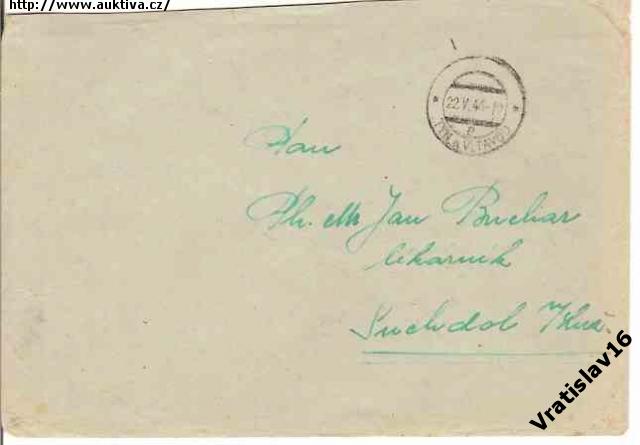 http://www.auktiva.cz/
22.V.4
TÝN n. VLTAVOU
Pan
Ph. Mr Jan Buchar
lékárník
Suchdol
Vratislav16